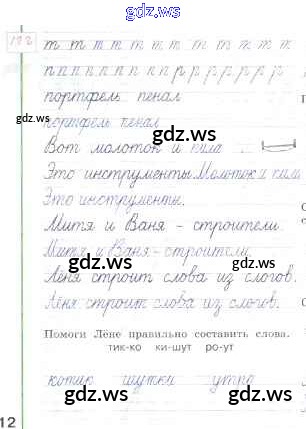 122 т т т т т т т т т т т т т
п п п п п п п п р р р р р р р р
портфель пенал
gdz.ws
портфель пенал
gdz.ws
Вот молоток и пила
Это инструменты. Молоток и пила
Это инструменты.
gdz.ws
Митя и Ваня - строители.
Митя и Ваня - строители.
gdz.ws
Лёня строит слова из слогов.
Лёня строит слова из слогов.
gdz.ws
Помоги Лёне правильно составить слова.
тик-ко ки-шут ро-ут
gdz.ws
котик шутки утро
12
gdz.ws
gdz.ws